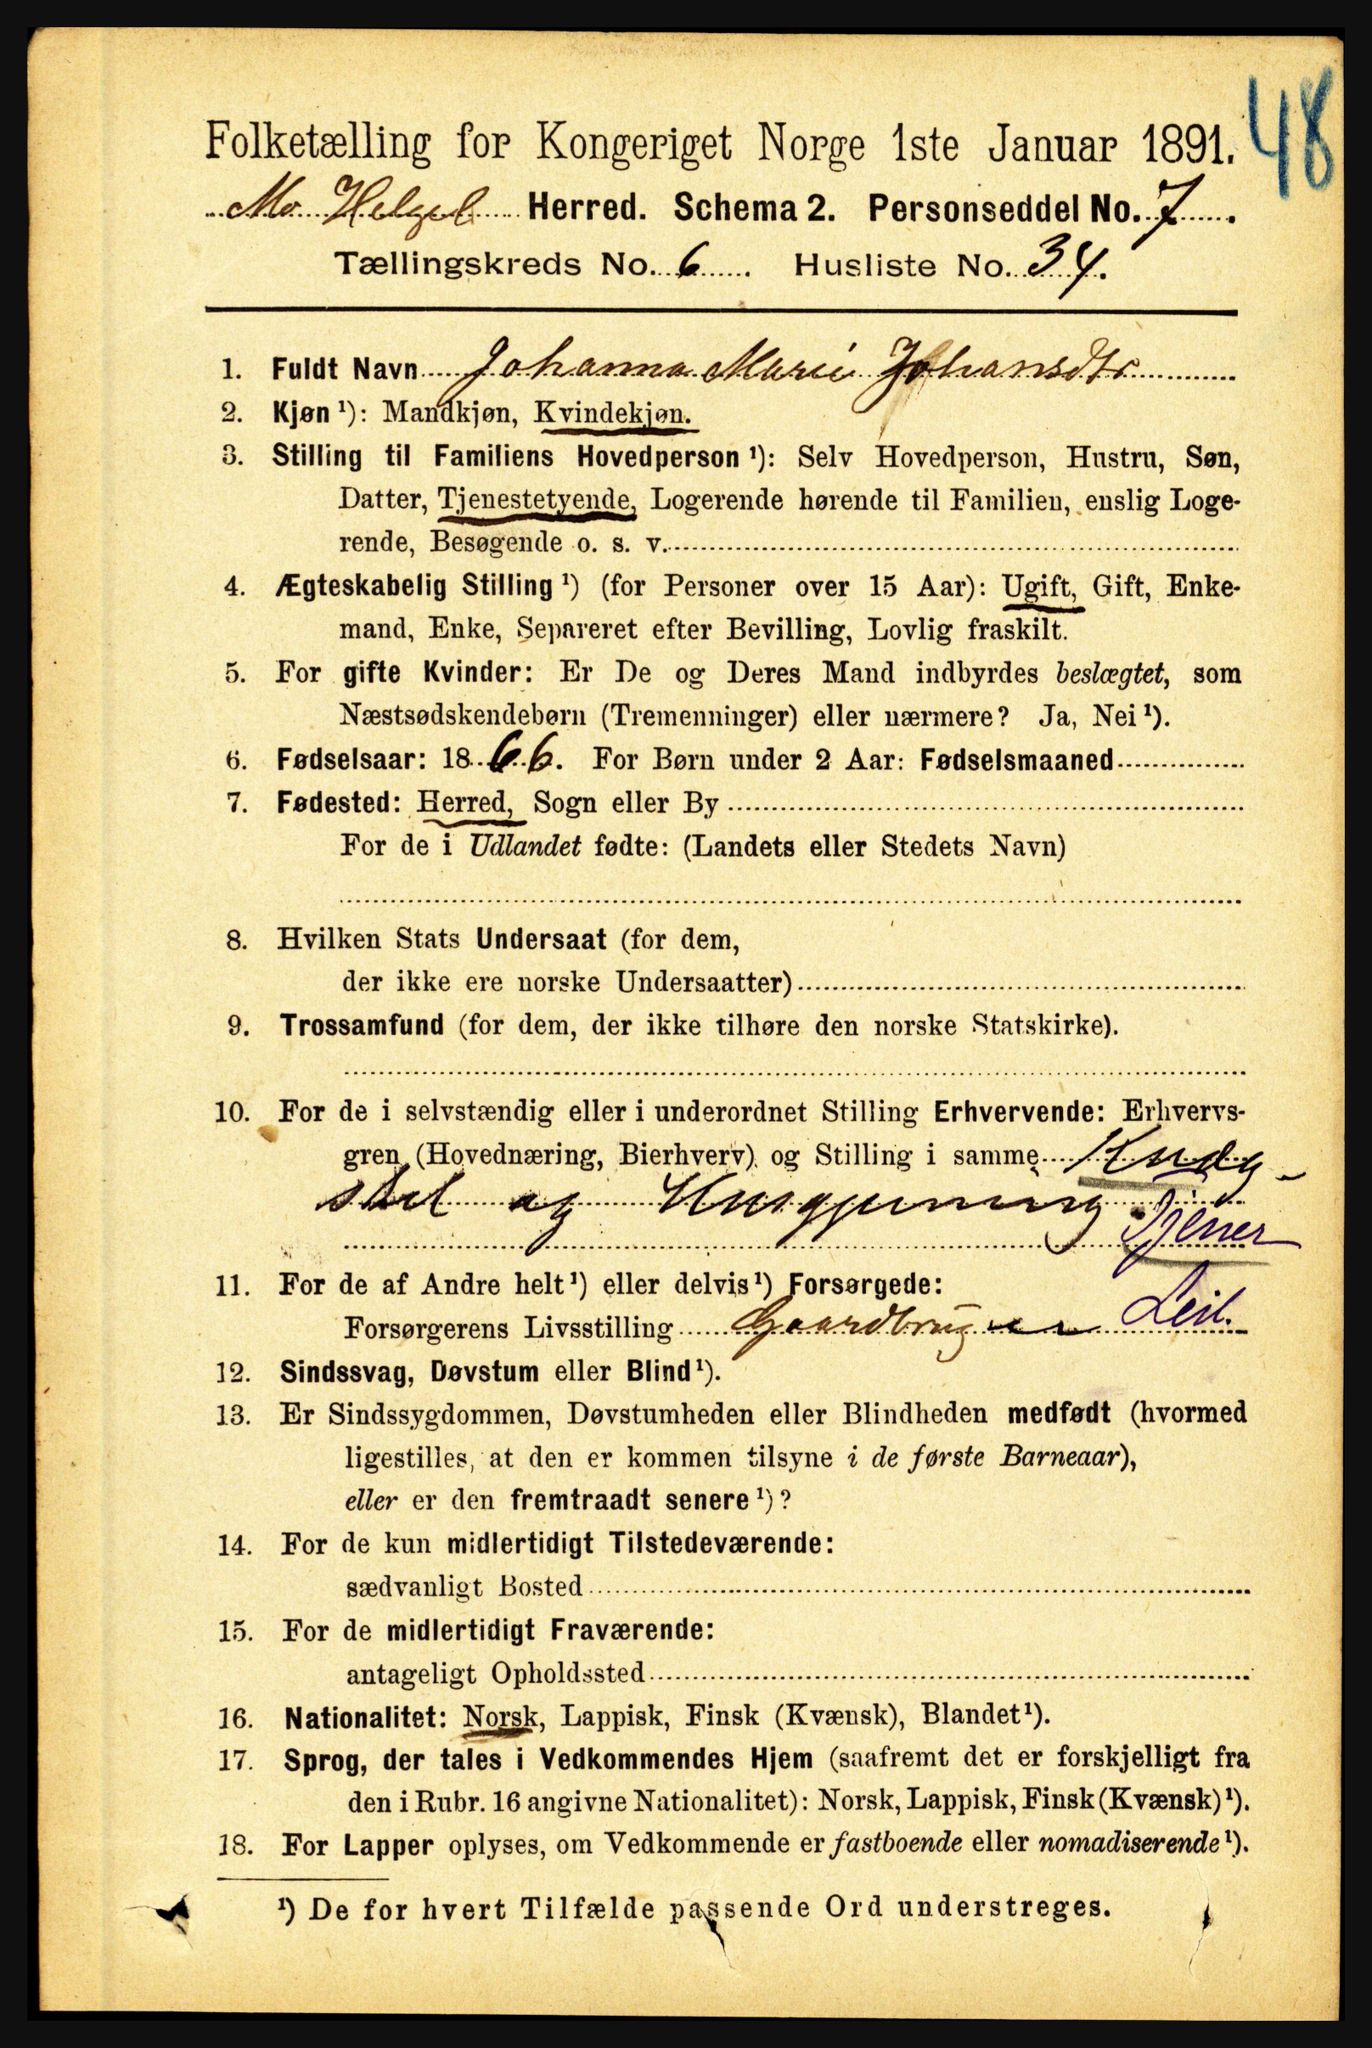 48
Folketælling for Kongeriget Norge 1ste Januar 1891.
Mo Helgel Herred. Schema 2. Personseddel No. 7.
Tællingskreds No. 6. Husliste No. 34.
1. Fuldt Navn Johanna Marie Johansdtr
2. Kjøn ¹): Mandkjøn, Kvindekjøn.
3. Stilling til Familiens Hovedperson ¹): Selv Hovedperson, Hustru, Søn,
Datter, Tjenestetyende, Logerende hørende til Familien, enslig Loge-
rende, Besøgende o. s. v.
4. Ægteskabelig Stilling ¹) (for Personer over 15 Aar): Ugift, Gift, Enke-
mand, Enke, Separeret efter Bevilling, Lovlig fraskilt.
5. For gifte Kvinder: Er De og Deres Mand indbyrdes beslægtet, som
Næstsødskendebørn (Tremenninger) eller nærmere? Ja, Nei ¹).
6. Fødselsaar: 1866. For Børn under 2 Aar: Fødselsmaaned
7. Fødested: Herred, Sogn eller By
For de i Udlandet fødte: (Landets eller Stedets Navn)
8. Hvilken Stats Undersaat (for dem,
der ikke ere norske Undersaatter)
9. Trossamfund (for dem, der ikke tilhøre den norske Statskirke).
10. For de i selvstændig eller i underordnet Stilling Erhvervende: Erhvervs-
gren (Hovednæring, Bierhverv) og Stilling i samme Kudg-
stel og Husgjerning
Tjener
11. For de af Andre helt ¹) eller delvis ¹) Forsørgede:
Forsørgerens Livsstilling Gaardbruger Leil.
12. Sindssvag, Døvstum eller Blind ¹).
13. Er Sindssygdommen, Døvstumheden eller Blindheden medfødt (hvormed
ligestilles, at den er kommen tilsyne i de første Barneaar),
eller er den fremtraadt senere ¹)?
14. For de kun midlertidigt Tilstedeværende:
sædvanligt Bosted
15. For de midlertidigt Fraværende:
antageligt Opholdssted
16. Nationalitet: Norsk, Lappisk, Finsk (Kvænsk), Blandet ¹).
17. Sprog, der tales i Vedkommendes Hjem (saafremt det er forskjelligt fra
den i Rubr. 16 angivne Nationalitet): Norsk, Lappisk, Finsk (Kvænsk) ¹).
18. For Lapper oplyses, om Vedkommende er fastboende eller nomadiserende ¹).
¹) De for hvert Tilfælde passende Ord understreges.